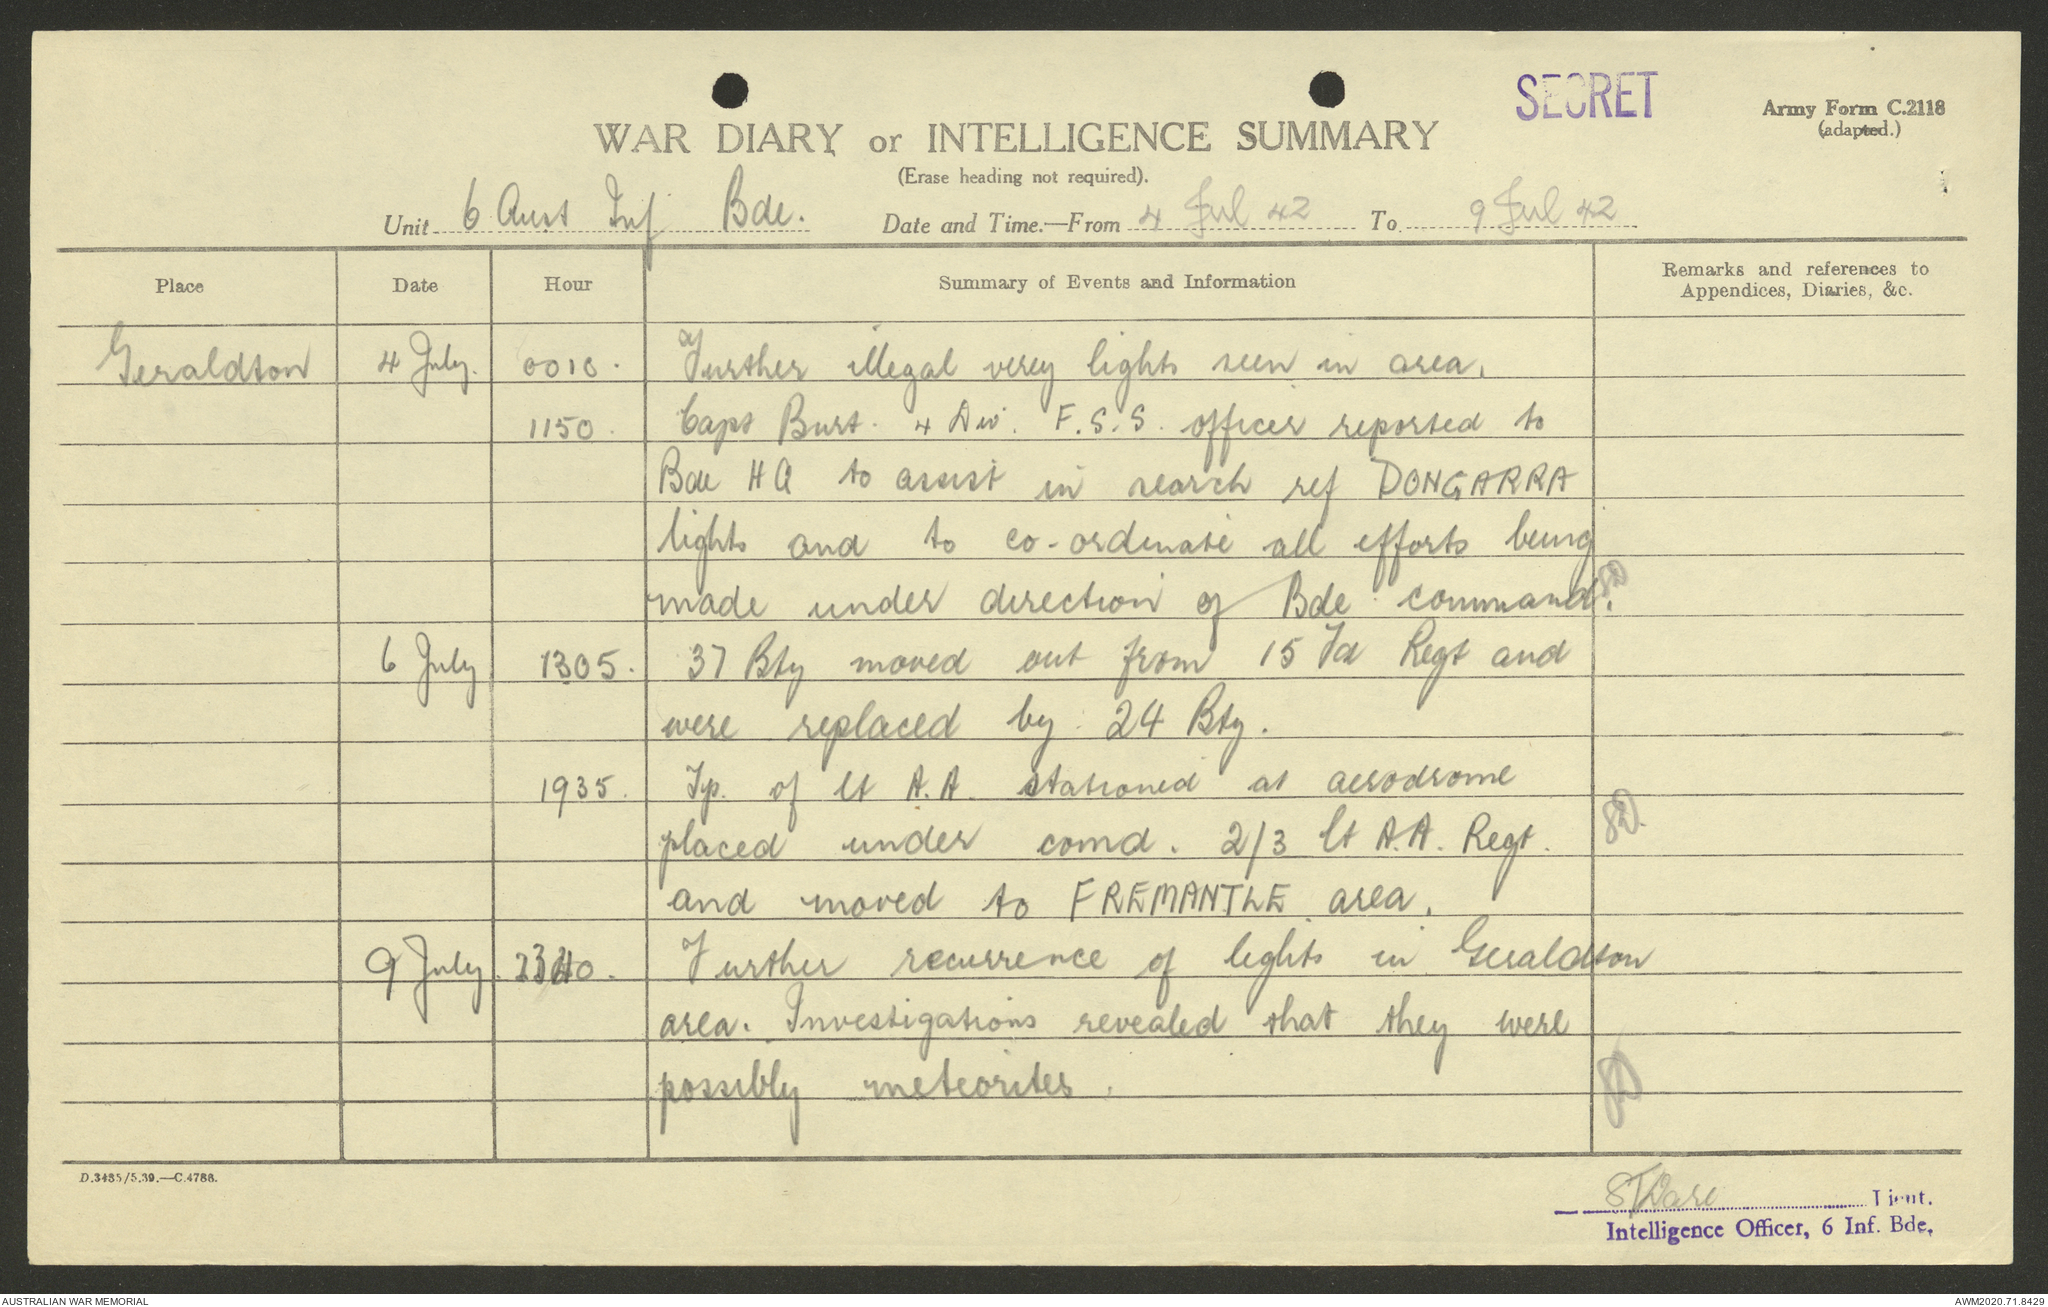 SECRET
Army Form C.2118
(adapted.)
WAR DIARY or INTELLIGENCE SUMMARY
(Erase heading not required).
Unit 6 Aust Inf Bde. Date and Time.—From 4 Jul 42 To 9 Jul 42
Place Date Hour Summary of Events and Information Remarks and references to
Appendices, Diaries, &c.
Geraldton 4 July. 0010. Further illegal verey lights seen in area.
1150. Capt Burt. 4 Div. F.S.S. officer reported to
Bde HQ to assist in search ref DONGARRA
lights and to co-ordinate all efforts being
made under direction of Bde command.
6 July 1305. 37 Bty moved out from 15 Fd Regt and
were replaced by 24 Bty.
1935. Tp. of Lt A.A. stationed at aerodrome
placed under comd. 2/3 Lt A.A. Regt.
and moved to FREMANTLE area.
9 July. 2340. Further recurrence of lights in Geraldton
area. Investigations revealed that they were
possibly meteorites.
D.3485/5.39.—C.4788.
Lieut.
Intelligence Officer, 6 Inf. Bde.
AUSTRALIAN WAR MEMORIAL AWM2020.71.8429